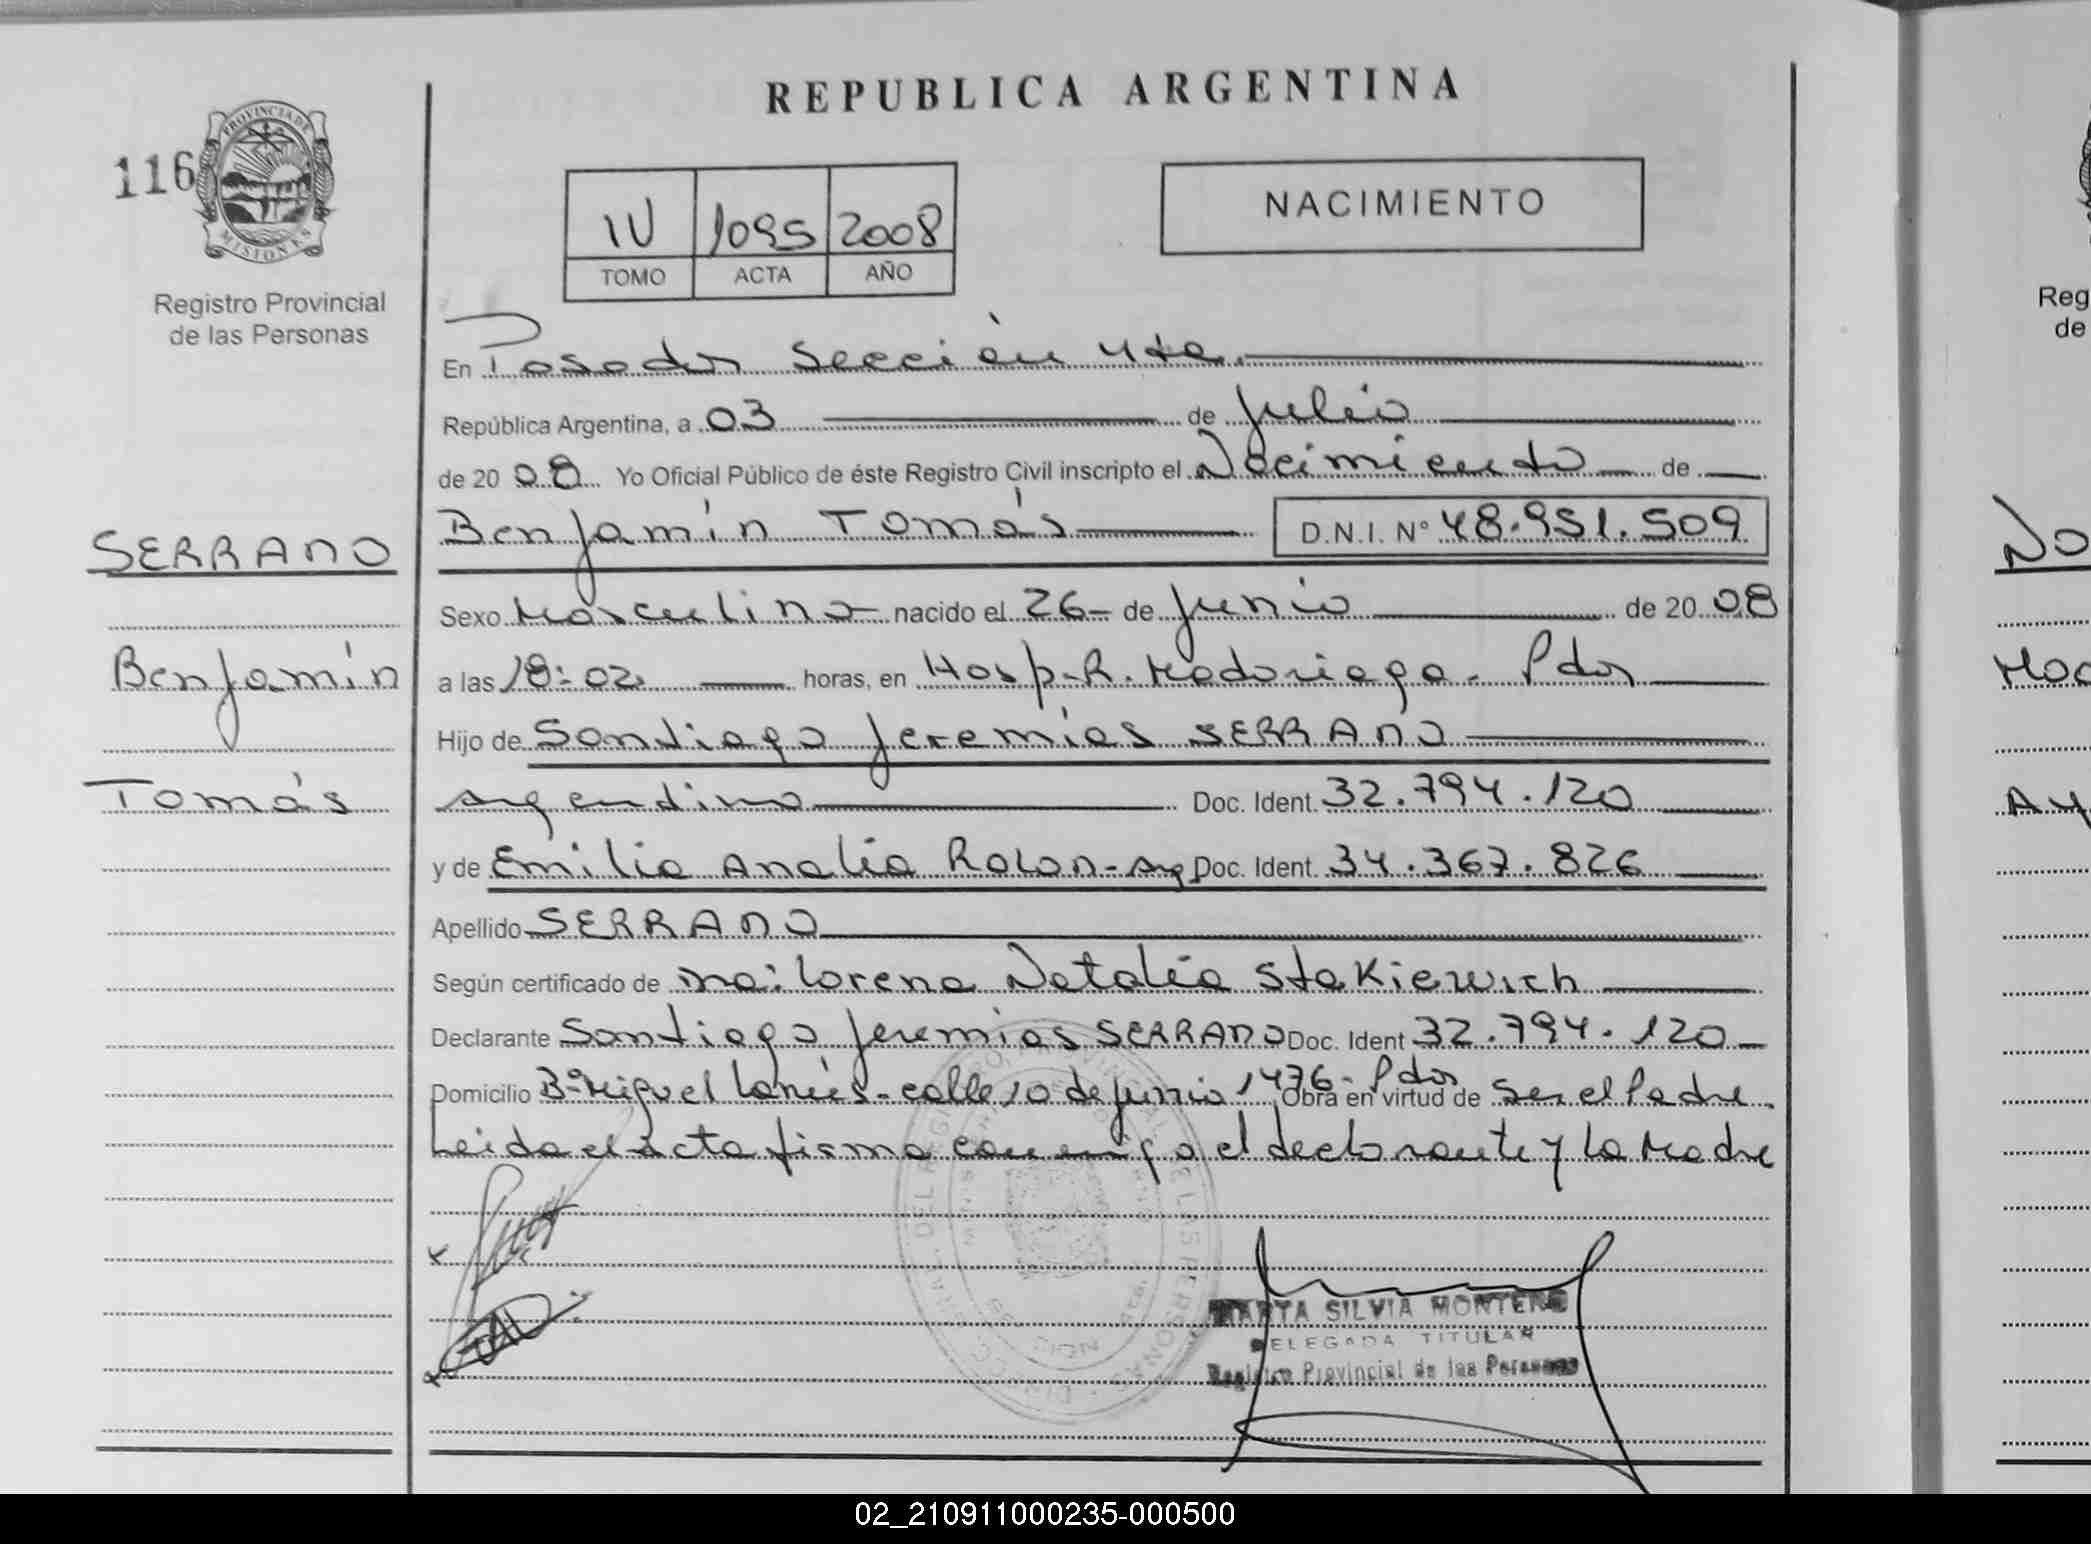 REPUBLICA ARGENTINA
116
PROVINCIA DE
MISIONES
Registro Provincial
de las Personas
IV 1095 2008
TOMO ACTA AÑO
NACIMIENTO
En Posadas Sección 4ta.
República Argentina, a 03 de Julio
de 2008 Yo Oficial Público de éste Registro Civil inscripto el Nacimiento de
Benjamín Tomás D.N.I. N° 48.951.509
SERRANO
Benjamín
Tomás
Sexo Masculino nacido el 26 de Junio de 2008
a las 18:02 horas, en Hosp. R. Madariaga. Pdas
Hijo de Santiago Jeremías SERRANO
argentino Doc. Ident. 32.794.120
y de Emilia Analía Rolon - Arg Doc. Ident. 34.367.826
Apellido SERRANO
Según certificado de Lorena Natalia Stakiewich
Declarante Santiago Jeremías SERRANO Doc. Ident 32.794.120
Domicilio B° Miguel Lanús - calle 10 de Junio 1476 - Pdas Obra en virtud de ser el Padre.
Leida el acta firma conmigo el declarante y la Madre
MARTA SILVIA MONTERO
DELEGADA TITULAR
Registro Provincial de las Personas
Reg
de
No
Mac
Ay
02_210911000235-000500